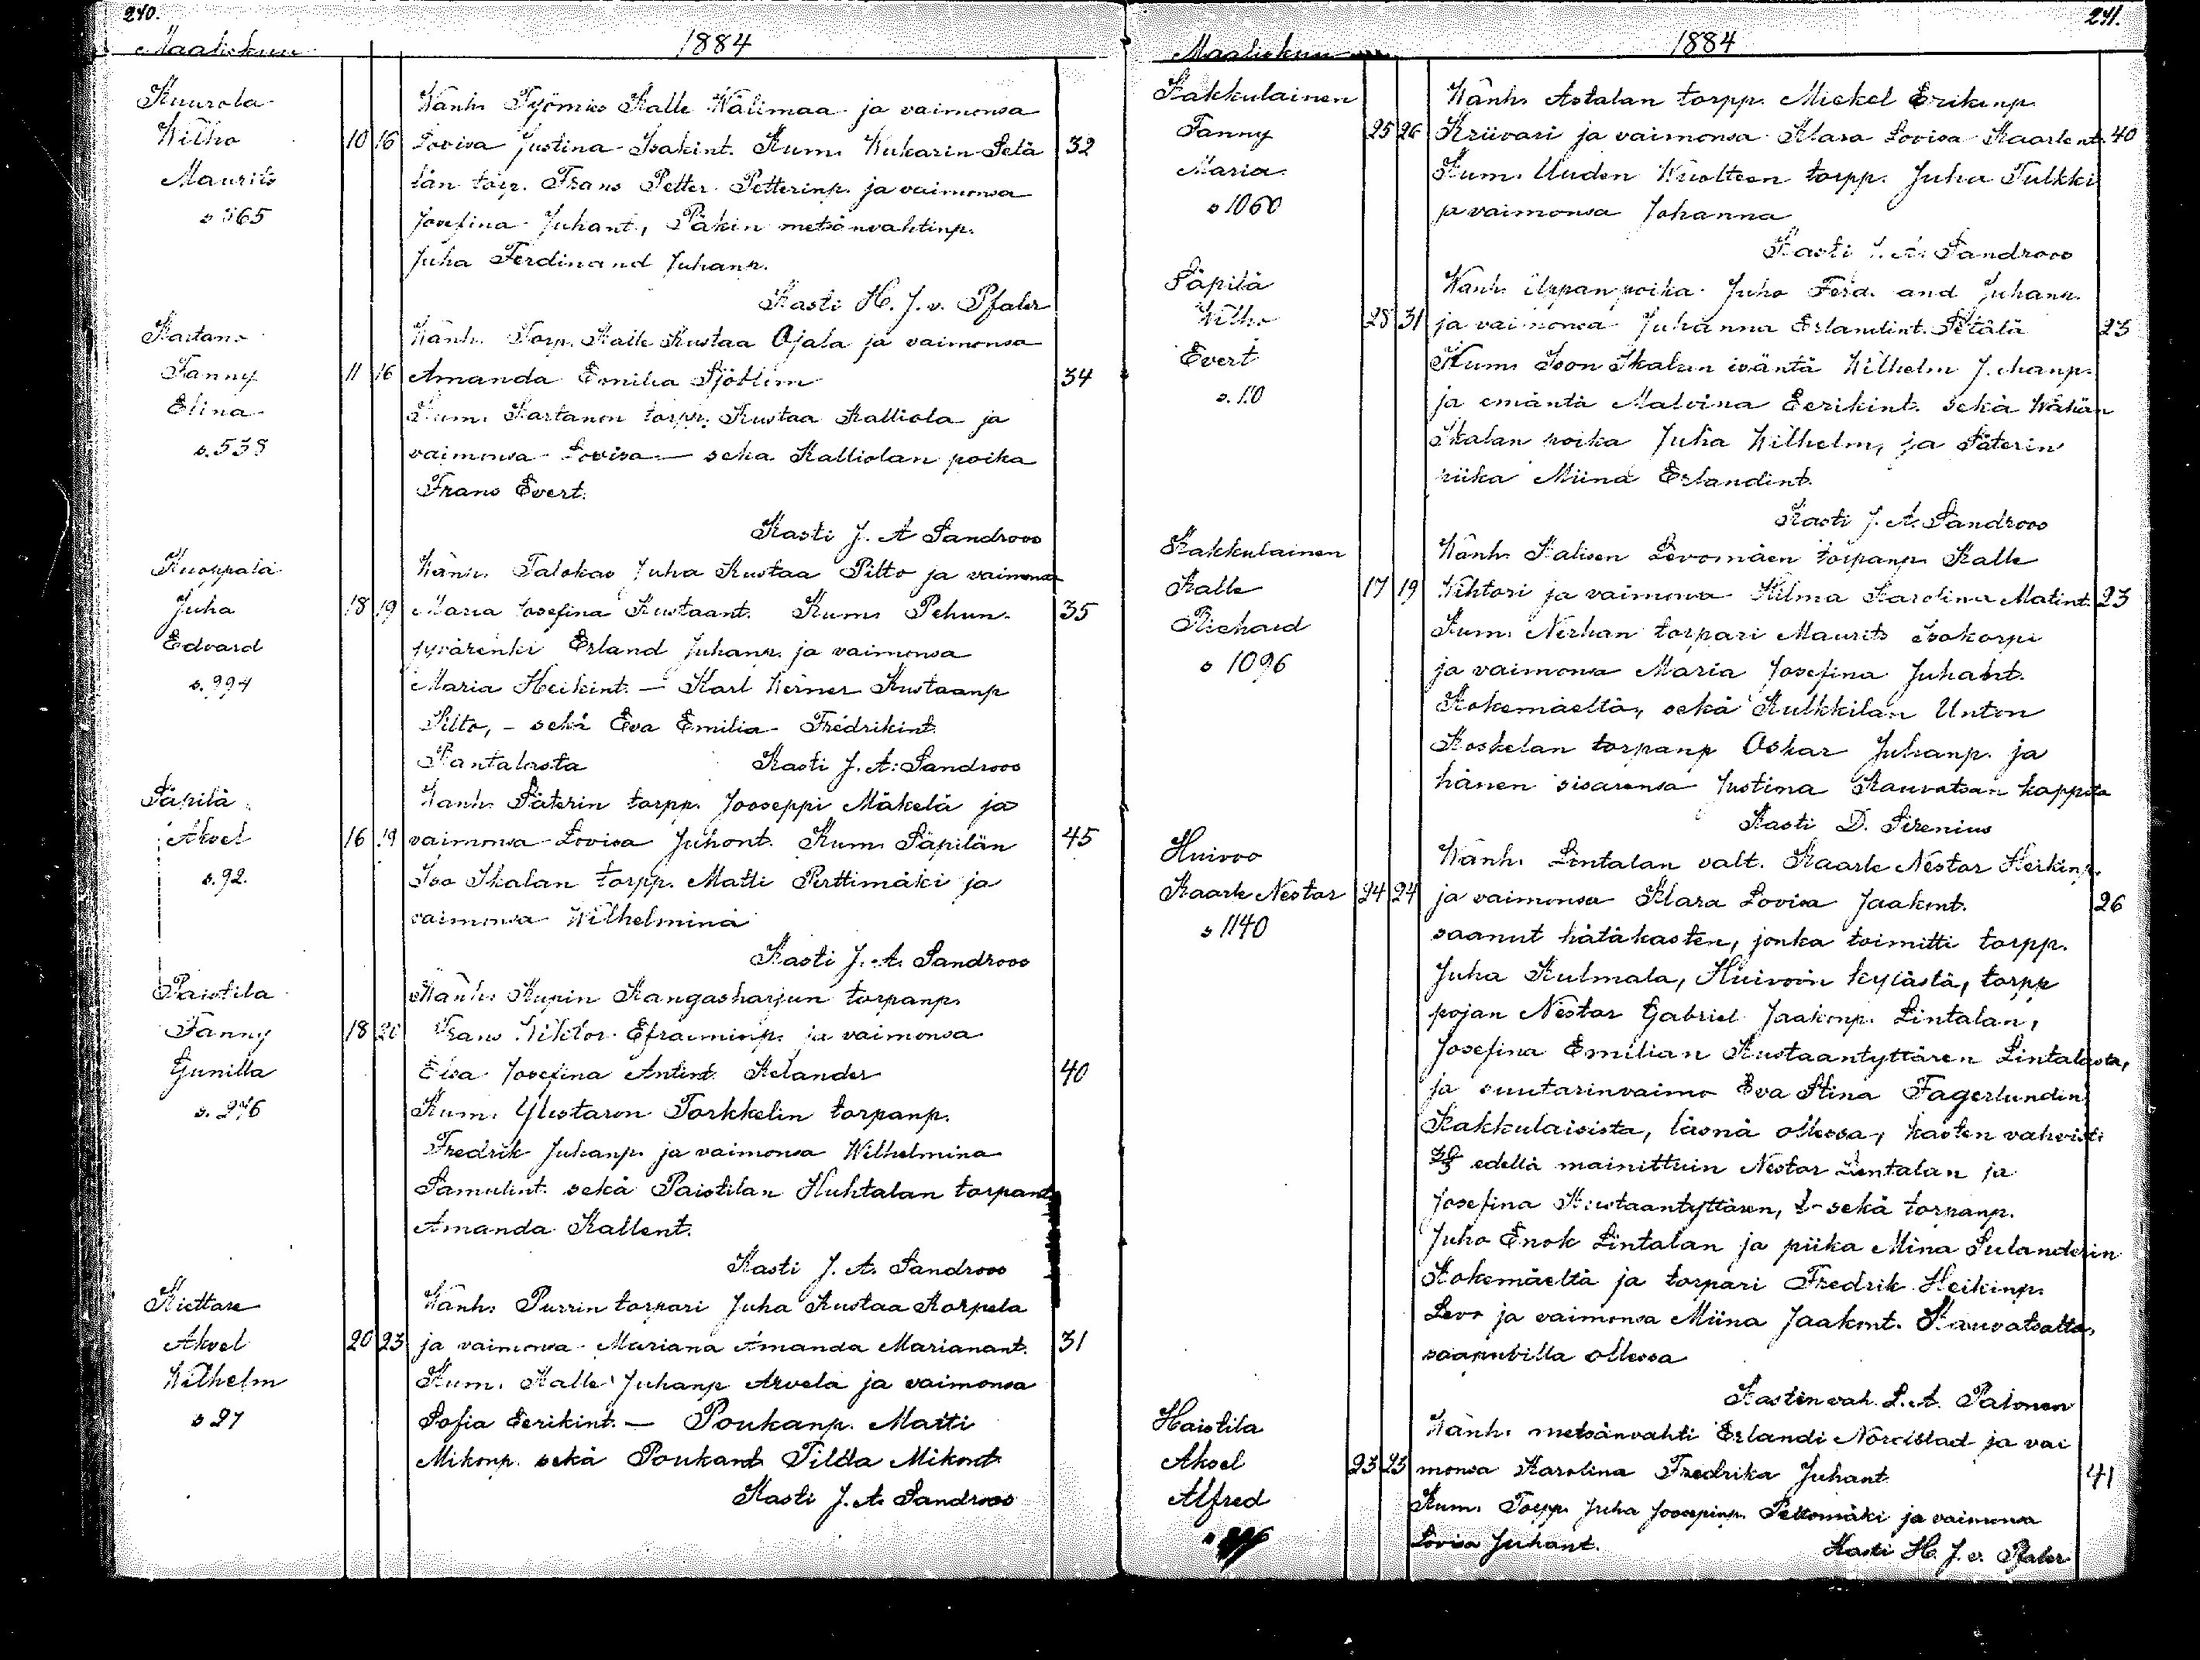 240.
Maaliskuu
1884
Kuurola
Wänh. Työmies Kalle Wälimaa ja vaimonsa
Wilho 10 16 Lovisa Justina Isakint. Kum. Kukarin Selä 32
Maurits
län torp. Frans Petter Petterinp. ja vaimonsa
s 565
Josefina Juhant., Päkin metsänvahtinp.
Juha Ferdinand Juhanp.
Kasti H. J. v. Pfaler
Kartano
Wänh. Torp. Kalle Kustaa Ojala ja vaimonsa
Fanny 11 16 Amanda Emilia Sjöblom 34
Elina
Kum. Kartanon torpp. Kustaa Kalliola ja
s. 538
vaimonsa Lovisa — sekä Kalliolan poika
Frans Evert.
Kasti J. A. Sandroos
Kuoppala
Wänh. Talokas Juha Kustaa Pilto ja vaimonsa
Juha 18 19 Maria Josefina Kustaant. Kum. Pehun- 35
Edvard
jyvärenki Erland Juhanp. ja vaimonsa
s. 994
Maria Heikint. — Karl Werner Kustaanp
Pilto, — sekä Eva Emilia Fredrikint.
Kantalasta Kasti J. A. Sandroos
Säpilä
Wanh. Säterin torpp. Jooseppi Mäkelä ja
Aksel 16 19 vaimonsa Lovisa Juhont. Kum. Säpilän 45
s. 92.
Iso Skalan torpp. Matti Perttimäki ja
vaimonsa Wilhelmina
Kasti J. A. Sandroos
Paistila
Wänh. Kupin Kangasharjun torpanp.
Fanny 18 20 Frans Wiktor Efraiminp. ja vaimonsa
Gunilla
Elsa Josefina Antint. Kelander 40
s. 276
Kum. Ylistaron Torkkelin torpanp.
Fredrik Juhanp. ja vaimonsa Wilhelmina
Samulint. sekä Paistilan Huhtalan torpant.
Amanda Kallent.
Kasti J. A. Sandroos
Kiettare
Wänh. Purrin torpari Juha Kustaa Korpela
Aksel 20 23 ja vaimonsa Mariana Amanda Marianant. 31
Wilhelm
Kum. Kalle Juhanp Arvela ja vaimonsa
s 27
Sofia Eerikint. — Poukanp. Matti
Mikonp. sekä Poukant. Tilda Mikont.
Kasti J. A. Sandroos
241.
Maaliskuu
1884
Kakkulainen
Wänh. Astalan torpp. Mickel Erikinp
Fanny 25 26 Kriivari ja vaimonsa Klara Lovisa Kaarlent. 40
Maria
Kum. Uuden Wuolteen torpp. Juha Tulkki
s 1060
ja vaimonsa Johanna
Kasti J. A. Sandroos
Säpilä
Wänh. Ilppan poika Juho Ferdinand Juhanp.
Wilho 28 31 ja vaimonsa Juhanna Erlandint. Setälä 23
Evert
Kum. Ison Skalan isäntä Wilhelm Juhanp.
s. 110
ja emäntä Malvina Eerikint. sekä Wähän
Skalan poika Juha Wilhelm, ja Säterin
piika Miina Erlandint.
Kasti J. A. Sandroos
Kakkulainen
Wänh. Kalisen Levomäen torpanp. Kalle
Kalle 17 19 Wihtori ja vaimonsa Hilma Karolina Matint. 23
Richard
Kum. Nerhan torpari Maurits Isokorpi
s 1096
ja vaimonsa Maria Josefina Juhant.
Kokemäeltä, sekä Kulkkilan Unton
Koskelan torpanp Oskar Juhanp. ja
hänen sisarensa Justina Kauvatsan kappelista
Kasti D. Sirenius
Huivoo
Wänh. Lintalan valt. Kaarle Nestor Heikinp.
Kaarle Nestor 24 24 ja vaimonsa Klara Lovisa Jaakont. 26
s 1140
saanut hätäkasten, jonka toimitti torpp.
Juha Kulmala, Huivoin kylästä, torpp
pojan Nestor Gabriel Jaakonp. Lintalan,
Josefina Emilian Kustaantyttären Lintalasta,
ja suutarinvaimo Eva Stina Fagerlundin
Kakkulaisista, läsnä ollessa, kasten vahvisti
edellä mainittuin Nestor Lintalan ja
Josefina Kustaantyttären, sekä torpanp.
Juho Enok Lintalan ja piika Mina Sulanderin
Kokemäeltä ja torpari Fredrik Heikinp.
Levo ja vaimonsa Miina Jaakont. Kauvatsalta,
saapuvilla ollessa
Kasten vah. L. A. Palonen
Haistila
Wänh. metsänvahti Erlandi Nordblad ja vai
Aksel 23 25 monsa Karolina Fredrika Juhant. 41
Alfred
Kum. Torpp. Juha Joosepinp. Peltomäki ja vaimonsa
Lovisa Juhant. Kasti H. J. v. Pfaler